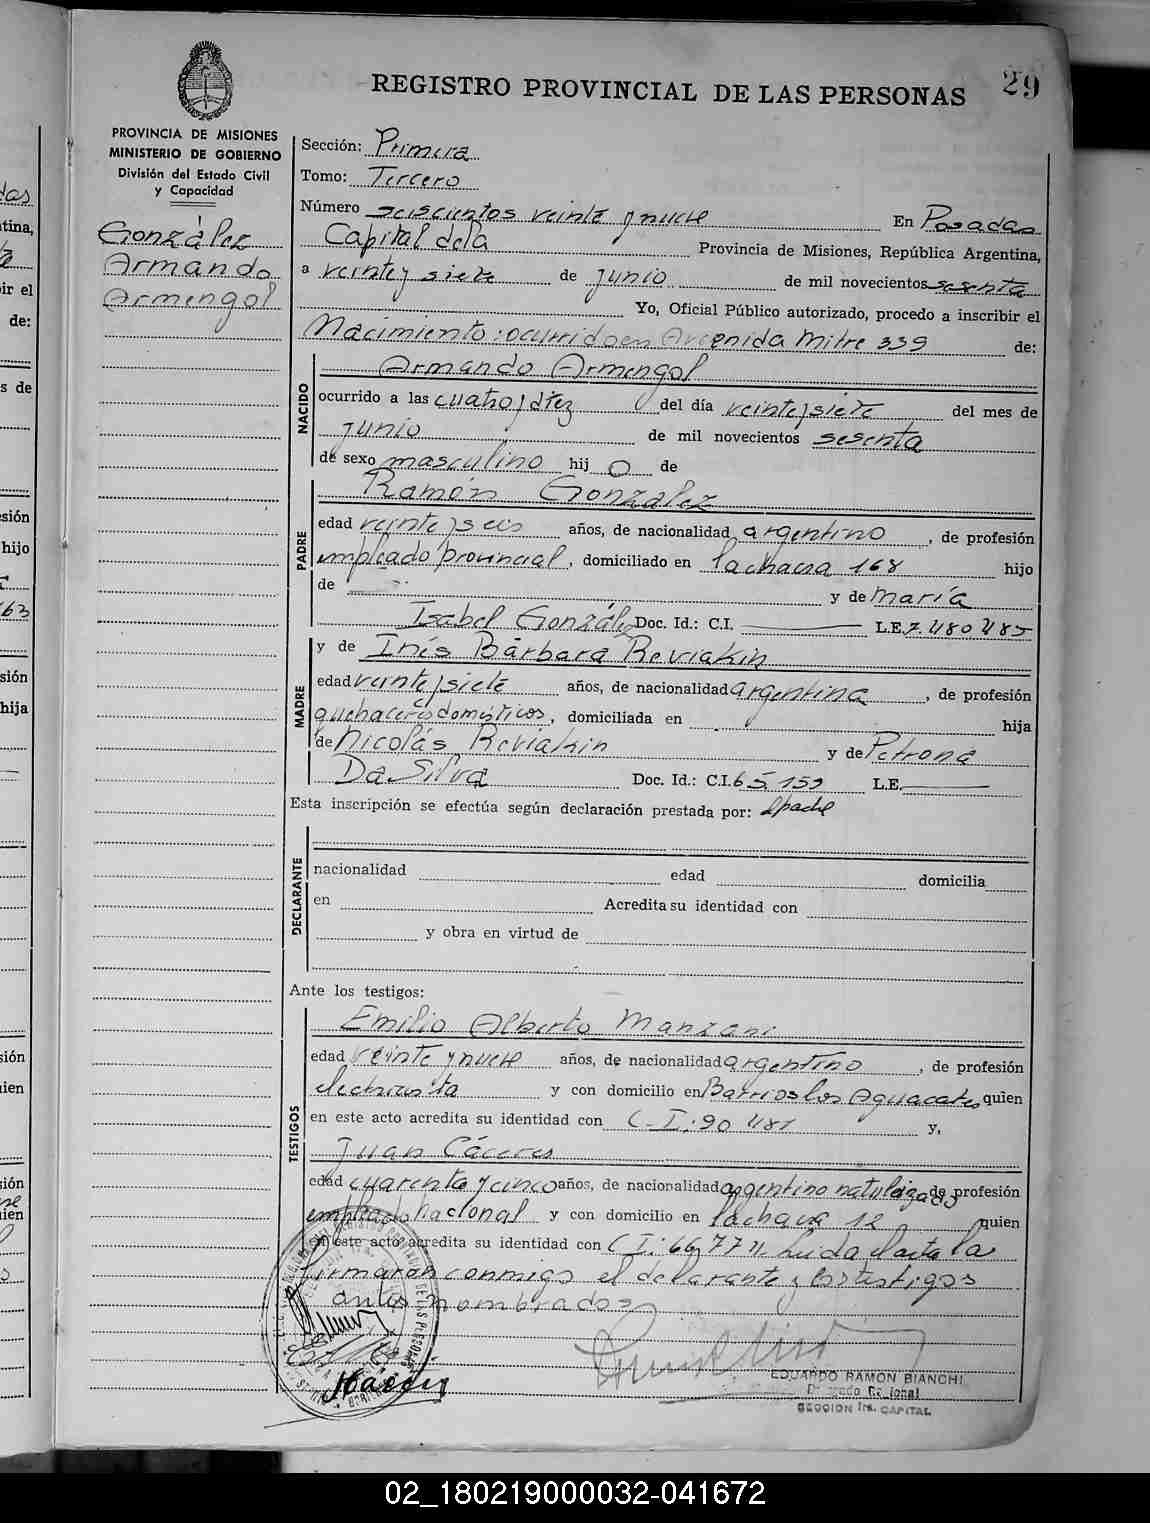 29
REGISTRO PROVINCIAL DE LAS PERSONAS
PROVINCIA DE MISIONES
MINISTERIO DE GOBIERNO
División del Estado Civil
y Capacidad
González
Armando
Armengol
Sección: Primera
Tomo: Tercero
Número seiscientos veinte y nueve En Posadas
Capital de la Provincia de Misiones, República Argentina,
a veinte y siete de junio de mil novecientos sesenta
Yo, Oficial Público autorizado, procedo a inscribir el
Nacimiento: ocurrido en Avenida Mitre 339 de:
NACIDO
Armando Armengol
ocurrido a las cuatro y diez del día veinte y siete del mes de
junio de mil novecientos sesenta
de sexo masculino hij o de
PADRE
Ramón González
edad veinte y seis años, de nacionalidad argentino, de profesión
empleado provincial, domiciliado en la chacra 168 hijo
de y de María
Isabel González Doc. Id.: C.I. L.E. 7.480.485
MADRE
y de Inés Bárbara Reviakin
edad veinte y siete años, de nacionalidad argentina, de profesión
quehaceres domésticos, domiciliada en hija
de Nicolás Reviakin y de Petrona
Da Silva Doc. Id.: C.I. 65.159 L.E.
Esta inscripción se efectúa según declaración prestada por: el padre
DECLARANTE
nacionalidad edad domicilia
en Acredita su identidad con
y obra en virtud de
Ante los testigos:
TESTIGOS
Emilio Alberto Manzani
edad veinte y nueve años, de nacionalidad argentino, de profesión
electricista y con domicilio en Barrio los Aguacates quien
en este acto acredita su identidad con C.I: 90.481 y,
Juan Cáceres
edad cuarenta y cinco años, de nacionalidad argentino naturalizado de profesión
empleado nacional y con domicilio en la chacra 12 quien
en este acto acredita su identidad con C I: 66.77 Leída el acta la
firmaron conmigo el declarante y los testigos
antes nombrados
EDUARDO RAMON BIANCHI
SECCION 1ra. CAPITAL
02_180219000032-041672